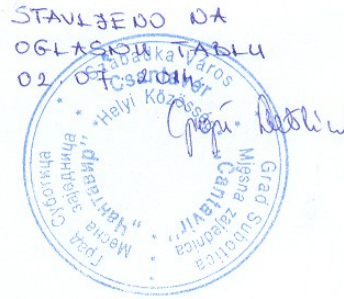 STAVLJENO NA
OGLASNU TABLU
02 07 2014
Szabadka Város
Csantavér
Helyi Közösség
Grad Subotica
Mjesna zajednica
"Čantavir"
Град Суботица
Месна заједница
"Чантавир"